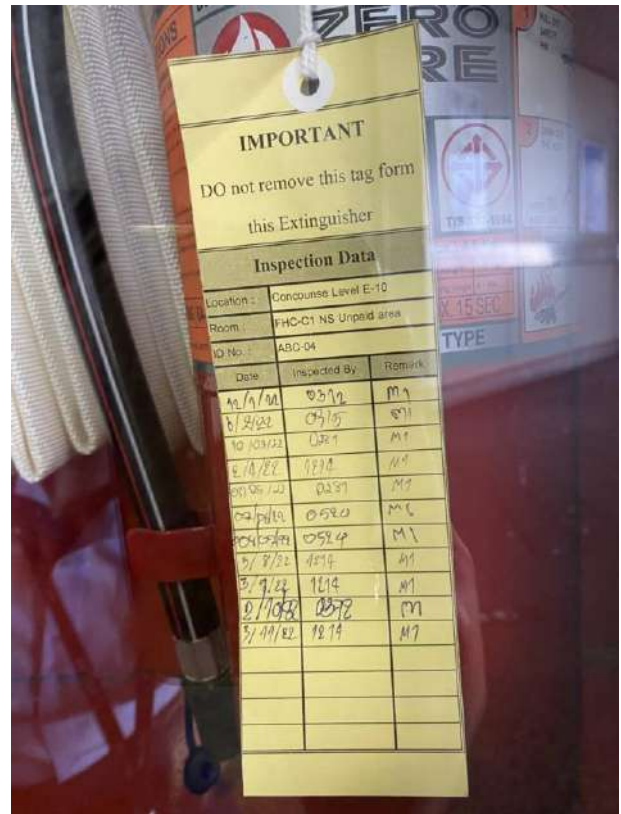 ZERO
RE
IMPORTANT
DO not remove this tag form
this Extinguisher
Inspection Data
Location : Concounse Level E-10
Room : FHC-C1 NS Unpaid area
ID No. : ABC-04
Date Inspected By Remark
12/1/22 0372 M1
6/2/22 0315 M1
10/03/22 0281 M1
2/4/22 1214 M1
0281 M1
0524 M6
0524 M1
3/8/22 1214 M1
3/9/22 1214 M1
2/10/22 0372 M
3/11/22 1214 M1
X 15 SEC
TYPE